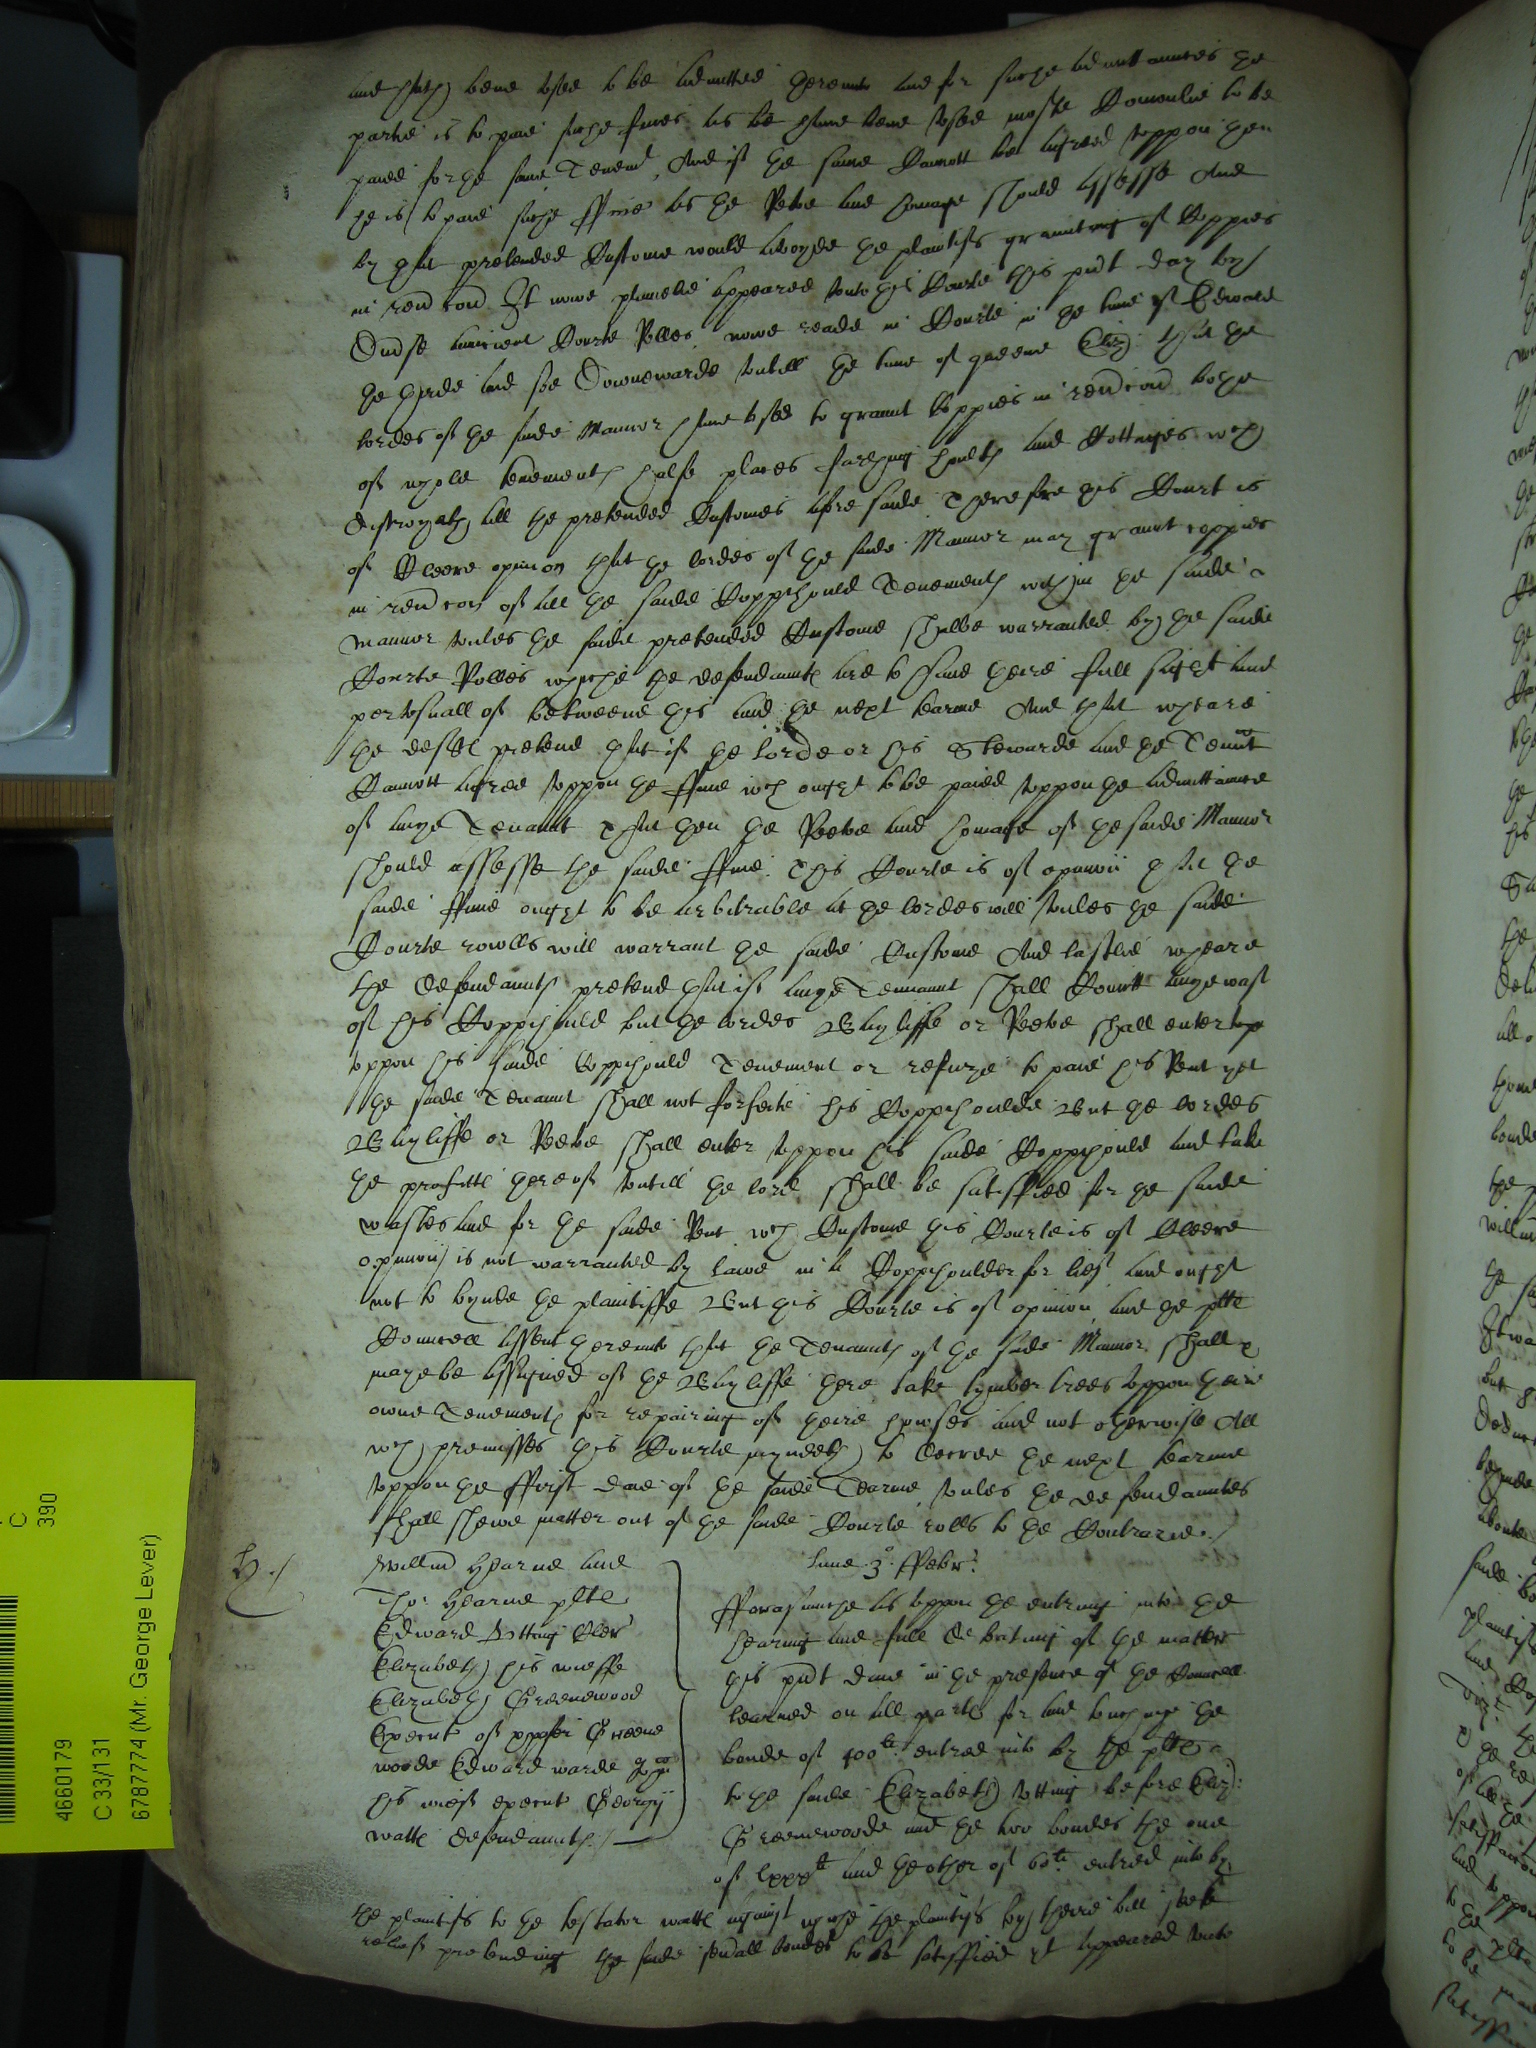 and hath bene used to be admitted thereunto and for suche admittaunces the
partie is to paie suche fines as be have bene used moste Comonlie to be
paied for the same Tenemt, And if the same Cannott be agreed uppon then
he is to paie suche ffine as the Reeve and homage should assesse And
by that pretended Custome would avoyde the plaintifs graunting of Coppies
in revercon It nowe plainelie appeared unto this Courte this pnt day by
auncient Courte Rolles nowe reade in Courte in the time of Edward
the third and soe Downewards untill the time of queene Eliz: that the
lordes of the saide Mannor have used to graunt Coppies in revercon bothe
of whole tenementes halfe places farthing houldes and Cottages wch
distroyeth all the pretended Customes aforesaide Therefore this Court is
of Cleere opinion that the lordes of the saide Mannor may graunt coppies
in revercon of all the saide Coppihould Tenementes within the saide
mannor unles the saide pretended Custome shalbe warranted by the saide
Courte Rolles whiche the defendauntes are to have theire full sight and
perusall of betweene this and the next tearme And that wheare
the deftes pretend that if the lorde or his Stewarde and the Tenant
Cannott agree uppon the ffine wch ought to be paied uppon the admittaunce
of anye Tenaunt That then the Reeve and homage of the saide Mannor
should assesse the saide ffine. This Courte is of opinion that the
saide ffine ought to be arbitrable at the lordes will unles the saide
Courte rowlls will warrant the saide Custome And lastlie wheare
the defendauntes pretend that if anye Tennaunt shall Comitt anye wast
of his Coppihould but the lordes Bayliffe or Reeve shall enter
uppon his saide Coppihould Tenement or refuze to paie his Rent yet
the saide Tenaunt shall not forfeite his Coppihoulde But the lordes
Bayliffe or Reeve shall enter uppon his saide Coppihould and take
the profitte thereof untill the lord shall be satisffied for the saide
wastes and for the saide Rent wch Custome this Courte is of Cleere
opinion is not warranted by lawe in a Coppihoulder for lief and ought
not to bynde the plaintiffe But this Courte is of opinion and the pltes
Councell assent thereunto that the Tenauntes of the saide Mannor shall
maye be assigned of the Bayliffe there take tymber trees uppon theire
owne Tenementes for repairing of theire howses and not otherwise All
wch premisses this Courte myndeth to decree the next tearme
uppon the ffirst daie of the saide Tearme unles the defendauntes
shall shewe matter out of the saide Courte rolls to the Contrarie./
H./
Willm Hearne and
Tho: Hearne pltes
Edward Utting Cler
Elizabeth his wieffe
Elizabeth Greenewood
Execut of Greene
woode Edward warde
his wief execut Georgij
watts defendauntes./
Lune 3° ffebr:
fforasmuche as uppon the entring into the
hearing and full debating of the matter
this pnt daie in the presence of the Councell
learned on all partes for and touching the
bonde of 400li entred into by the pltes
to the saide Elizabeth Utting before Eliz:
Greenewoode and the two bondes the one
of lxxxli and the other of 60li entred into by
the plaintifs to the testator watts against whiche the plaintifs by theire bill seeke
relief pretending the saide severall bondes to be satisffied it appeared unto
4660179
C 33/131
6787774 (Mr. George Lever)
C
390